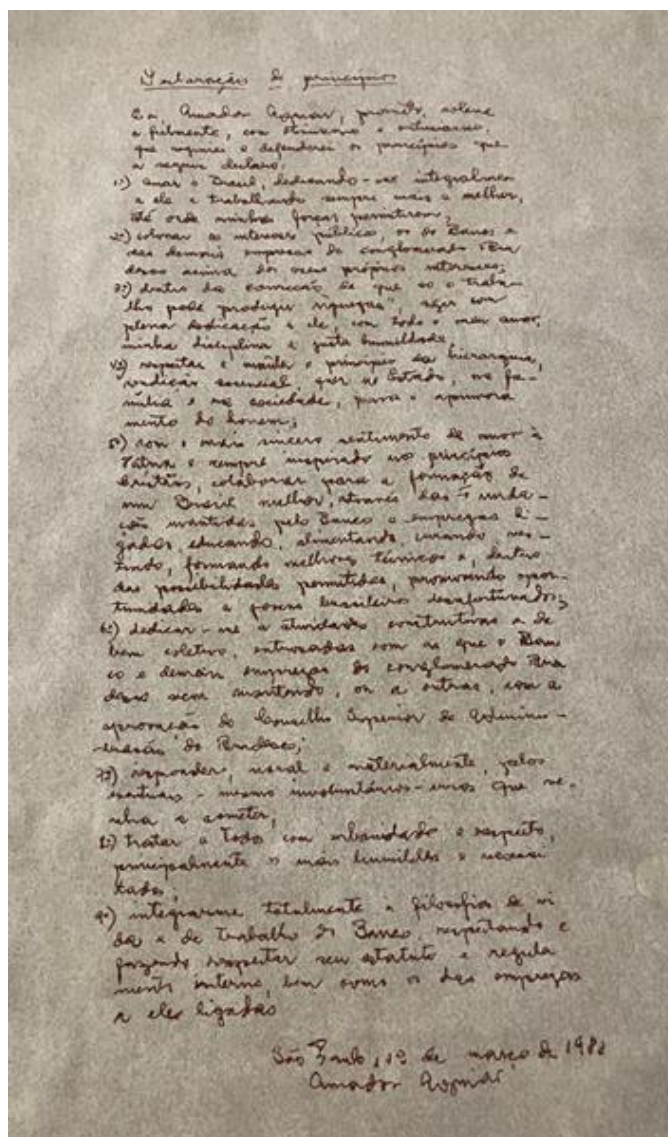 Declaração de princípios
Eu, Amador Aguiar, prometo, solene
e fielmente, com otimismo e entusiasmo,
que seguirei e defenderei os princípios que
a seguir declaro:
1º) amar o Brasil, dedicando-me integralmente
a ele e trabalhando sempre mais e melhor,
até onde minhas forças permitirem;
2º) colocar os interesses públicos, os do Banco e
das demais empresas do conglomerado Bra
desco acima dos meus próprios interesses;
3º) dentro da convicção de que "só o traba-
lho pode produzir riquezas", agir com
plena dedicação a ele, com todo o meu amor,
minha disciplina e justa humildade;
4º) respeitar e manter o princípio da hierarquia,
condição essencial, quer no Estado, na fa-
mília e na sociedade, para o aprimora
mento do homem;
5º) com o mais sincero sentimento de amor à
Pátria e sempre inspirado nos princípios
cristãos, colaborar para a formação de
um Brasil melhor, através das Funda-
ções mantidas pelo Banco e empresas li-
gadas, educando, alimentando, curando, ves-
tindo, formando melhores técnicos e, dentro
das possibilidades permitidas, promovendo opor-
tunidades a jovens brasileiros desafortunados;
6º) dedicar-me a atividades construtivas e de
bem coletivo, entrosadas com as que o Ban
co e demais empresas do conglomerado Bra
desco vem mantendo, ou a outras, com a
aprovação do Conselho Superior de Adminis-
tração do Bradesco;
7º) responder, moral e materialmente, pelos
eventuais - mesmo involuntários - erros que ve-
nha a cometer;
8º) tratar a todos com urbanidade e respeito,
principalmente os mais humildes e necessi
tados;
9º) integrarme totalmente a filosofia de vi
da e de trabalho do Banco, respeitando e
fazendo respeitar seu estatuto e regula
mento interno, bem como os das empresas
a eles ligadas
São Paulo, 19 de março de 1981
Amador Aguiar